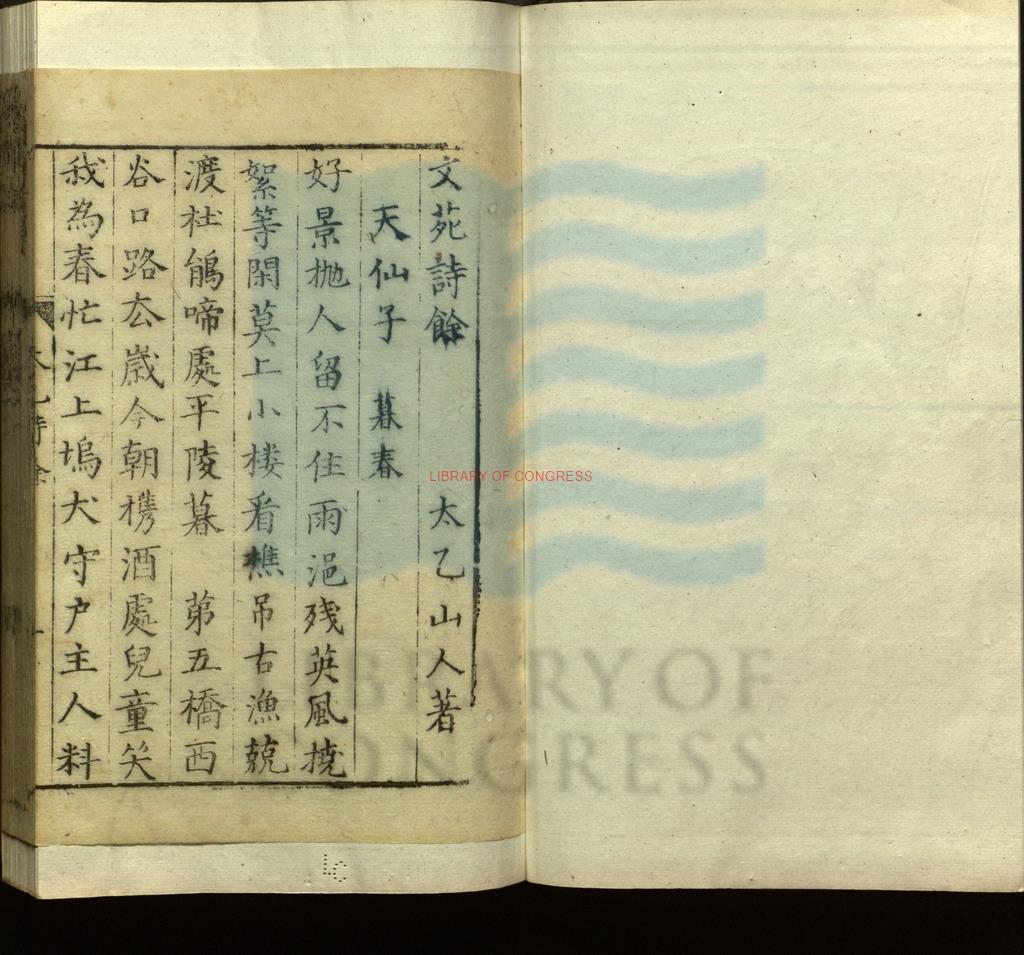 文苑詩餘 太乙山人著
天仙子 暮春
好景抛人留不住雨浥残英風撓
絮等閑莫上小楼看樵吊古漁兢
渡杜鵑啼處平陵暮 苐五橋西
谷口路厺歲今朝携酒處兒童笑
我為春忙江上塢犬守户主人料
LIBRARY OF CONGRESS
LIBRARY OF
CONGRESS